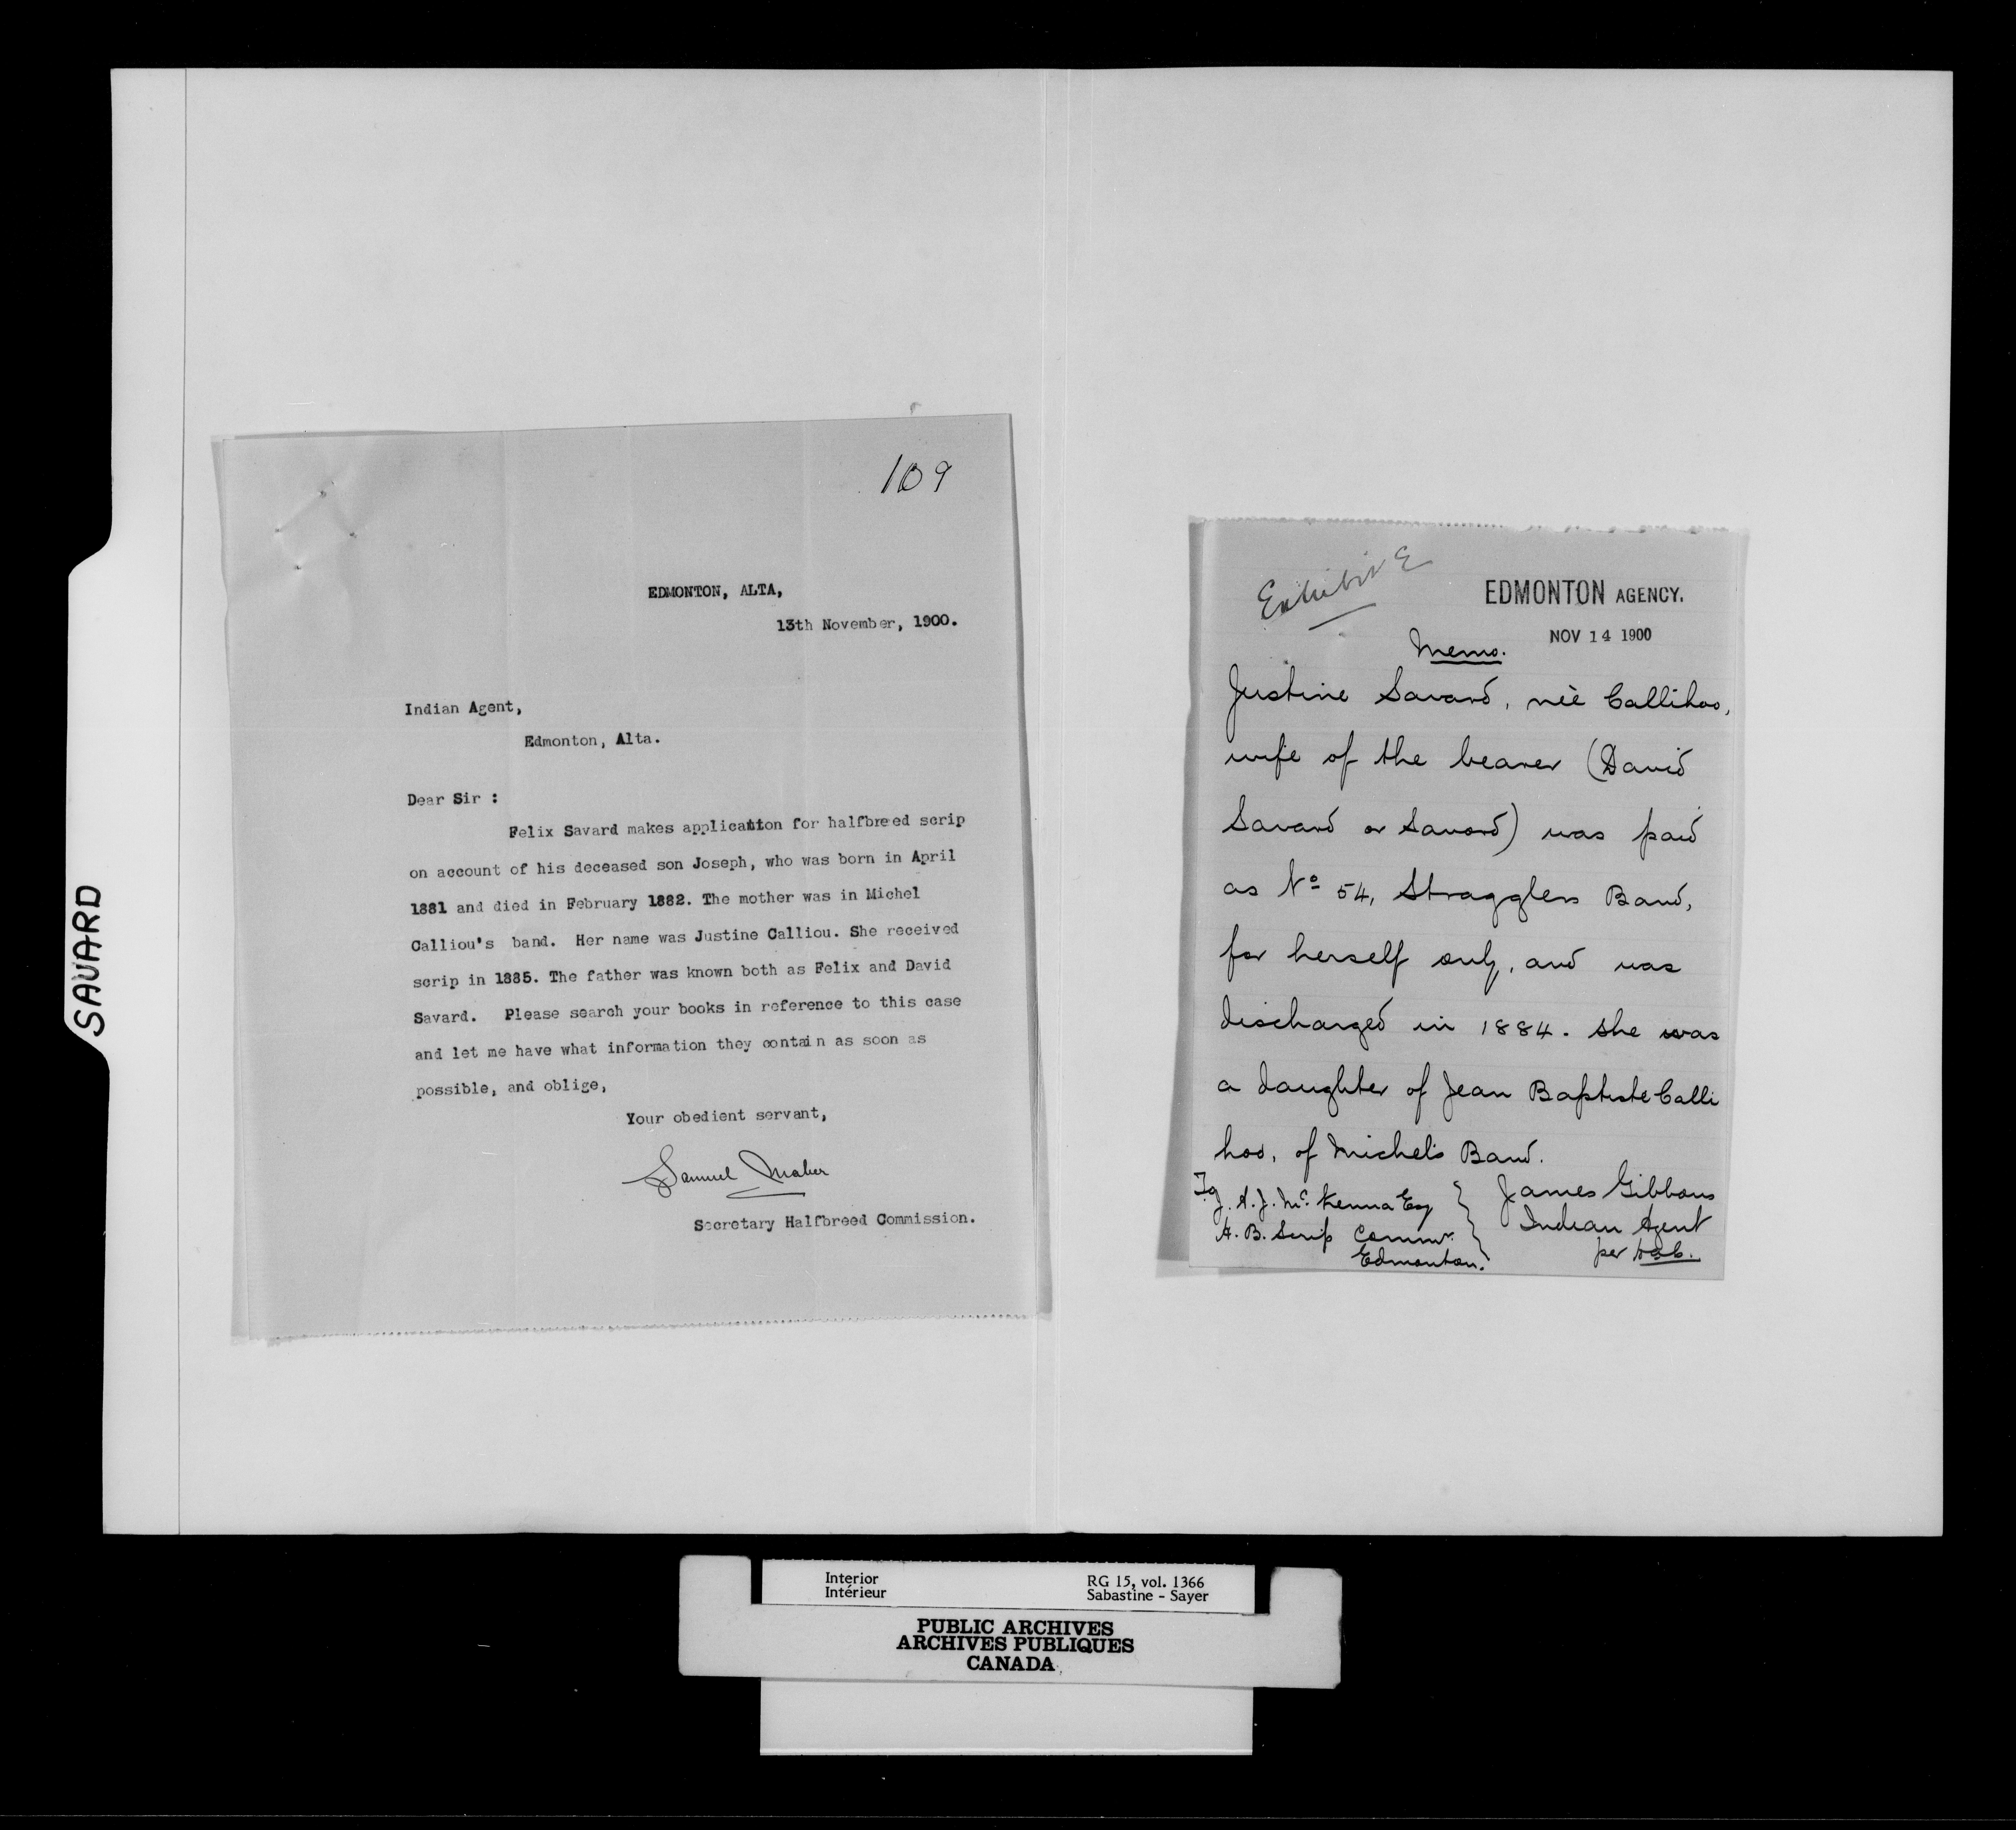 SAVARD
109
EDMONTON, ALTA,
13th November, 1900.
Indian Agent,
Edmonton, Alta.
Dear Sir :
Felix Savard makes application for halfbreed scrip
on account of his deceased son Joseph, who was born in April
1881 and died in February 1882. The mother was in Michel
Calliou's band. Her name was Justine Calliou. She received
scrip in 1885. The father was known both as Felix and David
Savard. Please search your books in reference to this case
and let me have what information they contain as soon as
possible, and oblige,
Your obedient servant,
Samuel Maber
Secretary Halfbreed Commission.
Exhibit E
EDMONTON AGENCY.
NOV 14 1900
Memo.
Justine Savard, neè Callihoo,
wife of the bearer (David
Savard or Savord) was paid
as No 54, Stragglers Band,
for herself only, and was
discharged in 1884. She was
a daughter of Jean Baptiste Calli
hoo, of Michel's Band.
To
J. A. J. McKenna Esq
H. B. Scrip Commr.
Edmonton.
James Gibbons
Indian Agent
per
Interior
Intérieur
RG 15, vol. 1366
Sabastine - Sayer
PUBLIC ARCHIVES
ARCHIVES PUBLIQUES
CANADA